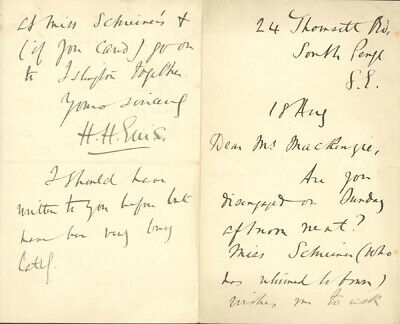 24 Thornsett Rd,
South Penge
S.E.
18 Aug
Dear Ms MacKenzie,
Are you
disengaged on Sunday
afternoon next?
Miss Schreiner (who
has returned to town)
wishes me to ask
at Miss Schreiner's &
(if you care) go on
to Islington together.
Yours sincerely
H. H. Ellis.
I should have
written to you before but
have been very busy
lately.